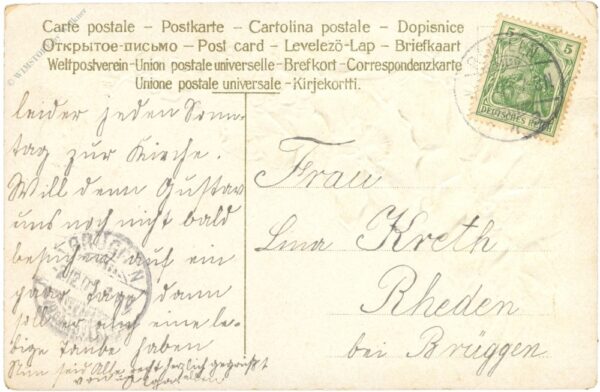 Carte postale – Postkarte – Cartolina postale – Dopisnice
Открытое-письмо – Post card – Levelezö-Lap – Briefkaart
Weltpostverein-Union postale universelle-Brefkort-Correspondenzkarte
Unione postale universale-Kirjekortti.
5 5
DEUTSCHES REICH
leider jeden Sonn-
tag zur Kirche.
Will denn Gustav
uns noch nicht bald
besuchen auf ein
paar Tage dann
soll er auch eine le-
bige Taube haben
Nun seid Alle recht herzlich gegrüßt
von
BRÜGGEN
Frau
Lina Kreth
Rheden
bei Brüggen.